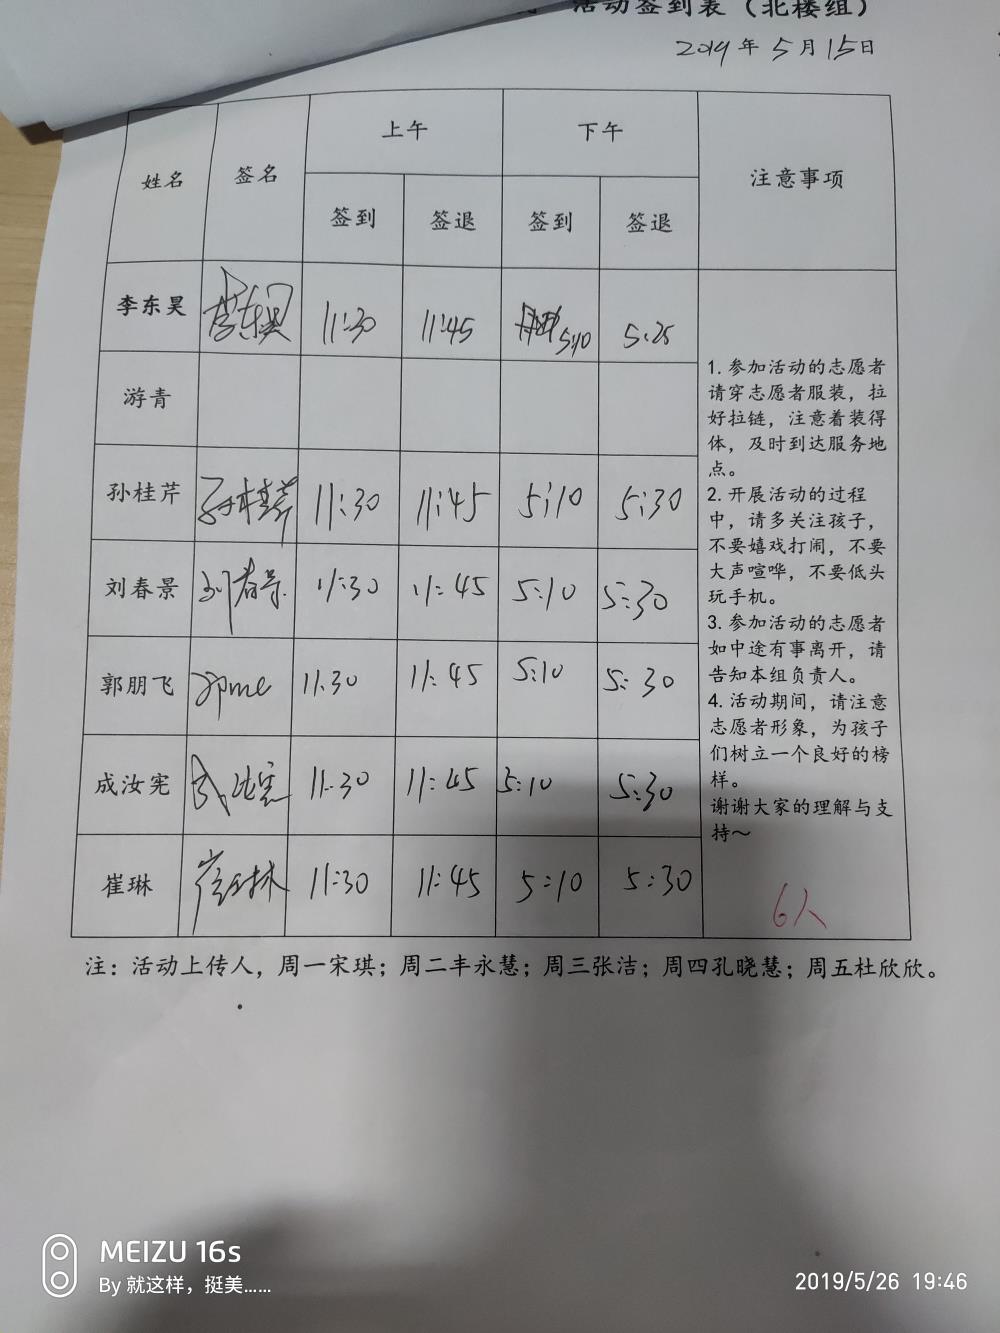 活动签到表（北楼组）
2019年5月15日
姓名 签名 上午 下午 注意事项
签到 签退 签到 签退
李东昊 李东昊 11:30 11:45 5:10 5:25
游青
孙桂芹 孙桂芹 11:30 11:45 5:10 5:30
刘春景 刘春景 11:30 11:45 5:10 5:30
郭朋飞 11:30 11:45 5:10 5:30
成汝宪 成汝宪 11:30 11:45 5:10 5:30
崔琳 崔琳 11:30 11:45 5:10 5:30
1. 参加活动的志愿者
请穿志愿者服装，拉
好拉链，注意着装得
体，及时到达服务地
点。
2. 开展活动的过程
中，请多关注孩子，
不要嬉戏打闹，不要
大声喧哗，不要低头
玩手机。
3. 参加活动的志愿者
如中途有事离开，请
告知本组负责人。
4. 活动期间，请注意
志愿者形象，为孩子
们树立一个良好的榜
样。
谢谢大家的理解与支
持～
6人
注：活动上传人，周一宋琪；周二丰永慧；周三张洁；周四孔晓慧；周五杜欣欣。
MEIZU 16s
By 就这样，挺美......
2019/5/26 19:46